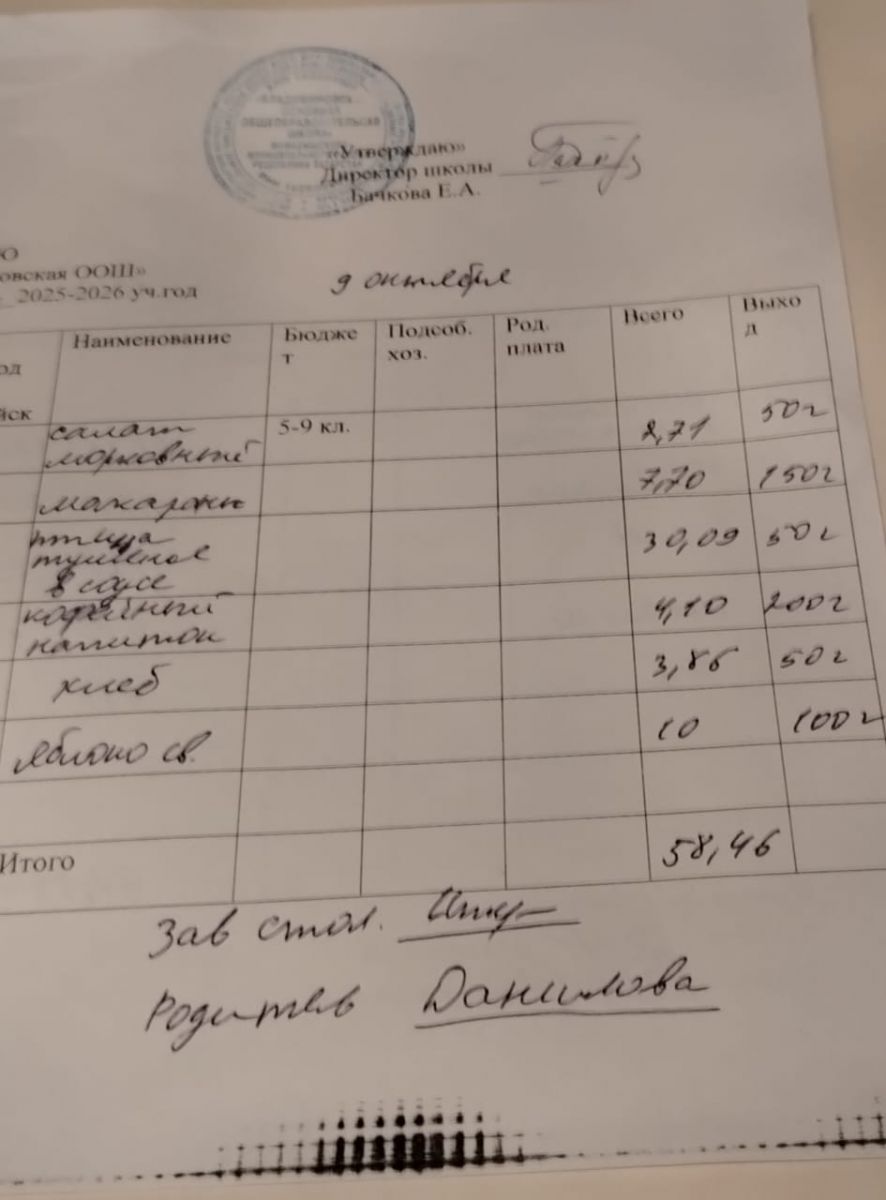 ОБЩЕОБРАЗОВАТЕЛЬНАЯ
ШКОЛА»
«Утверждаю»
Директор школы
Бачкова Е.А.
О
овская ООШ»
2025-2026 уч.год
9 октября
од
йск
Наименование
Бюдже
т
Подсоб.
хоз.
Род.
плата
Всего
Выхо
д
салат
морковный
5-9 кл.
2,71
50г
макароны
7,70
150г
птица
тушеное
в соусе
30,09
50г
кофейный
напиток
4,10
200г
хлеб
3,86
50г
Яблоко св.
10
100г
Итого
58,46
Зав стол.
Родитель Данилова